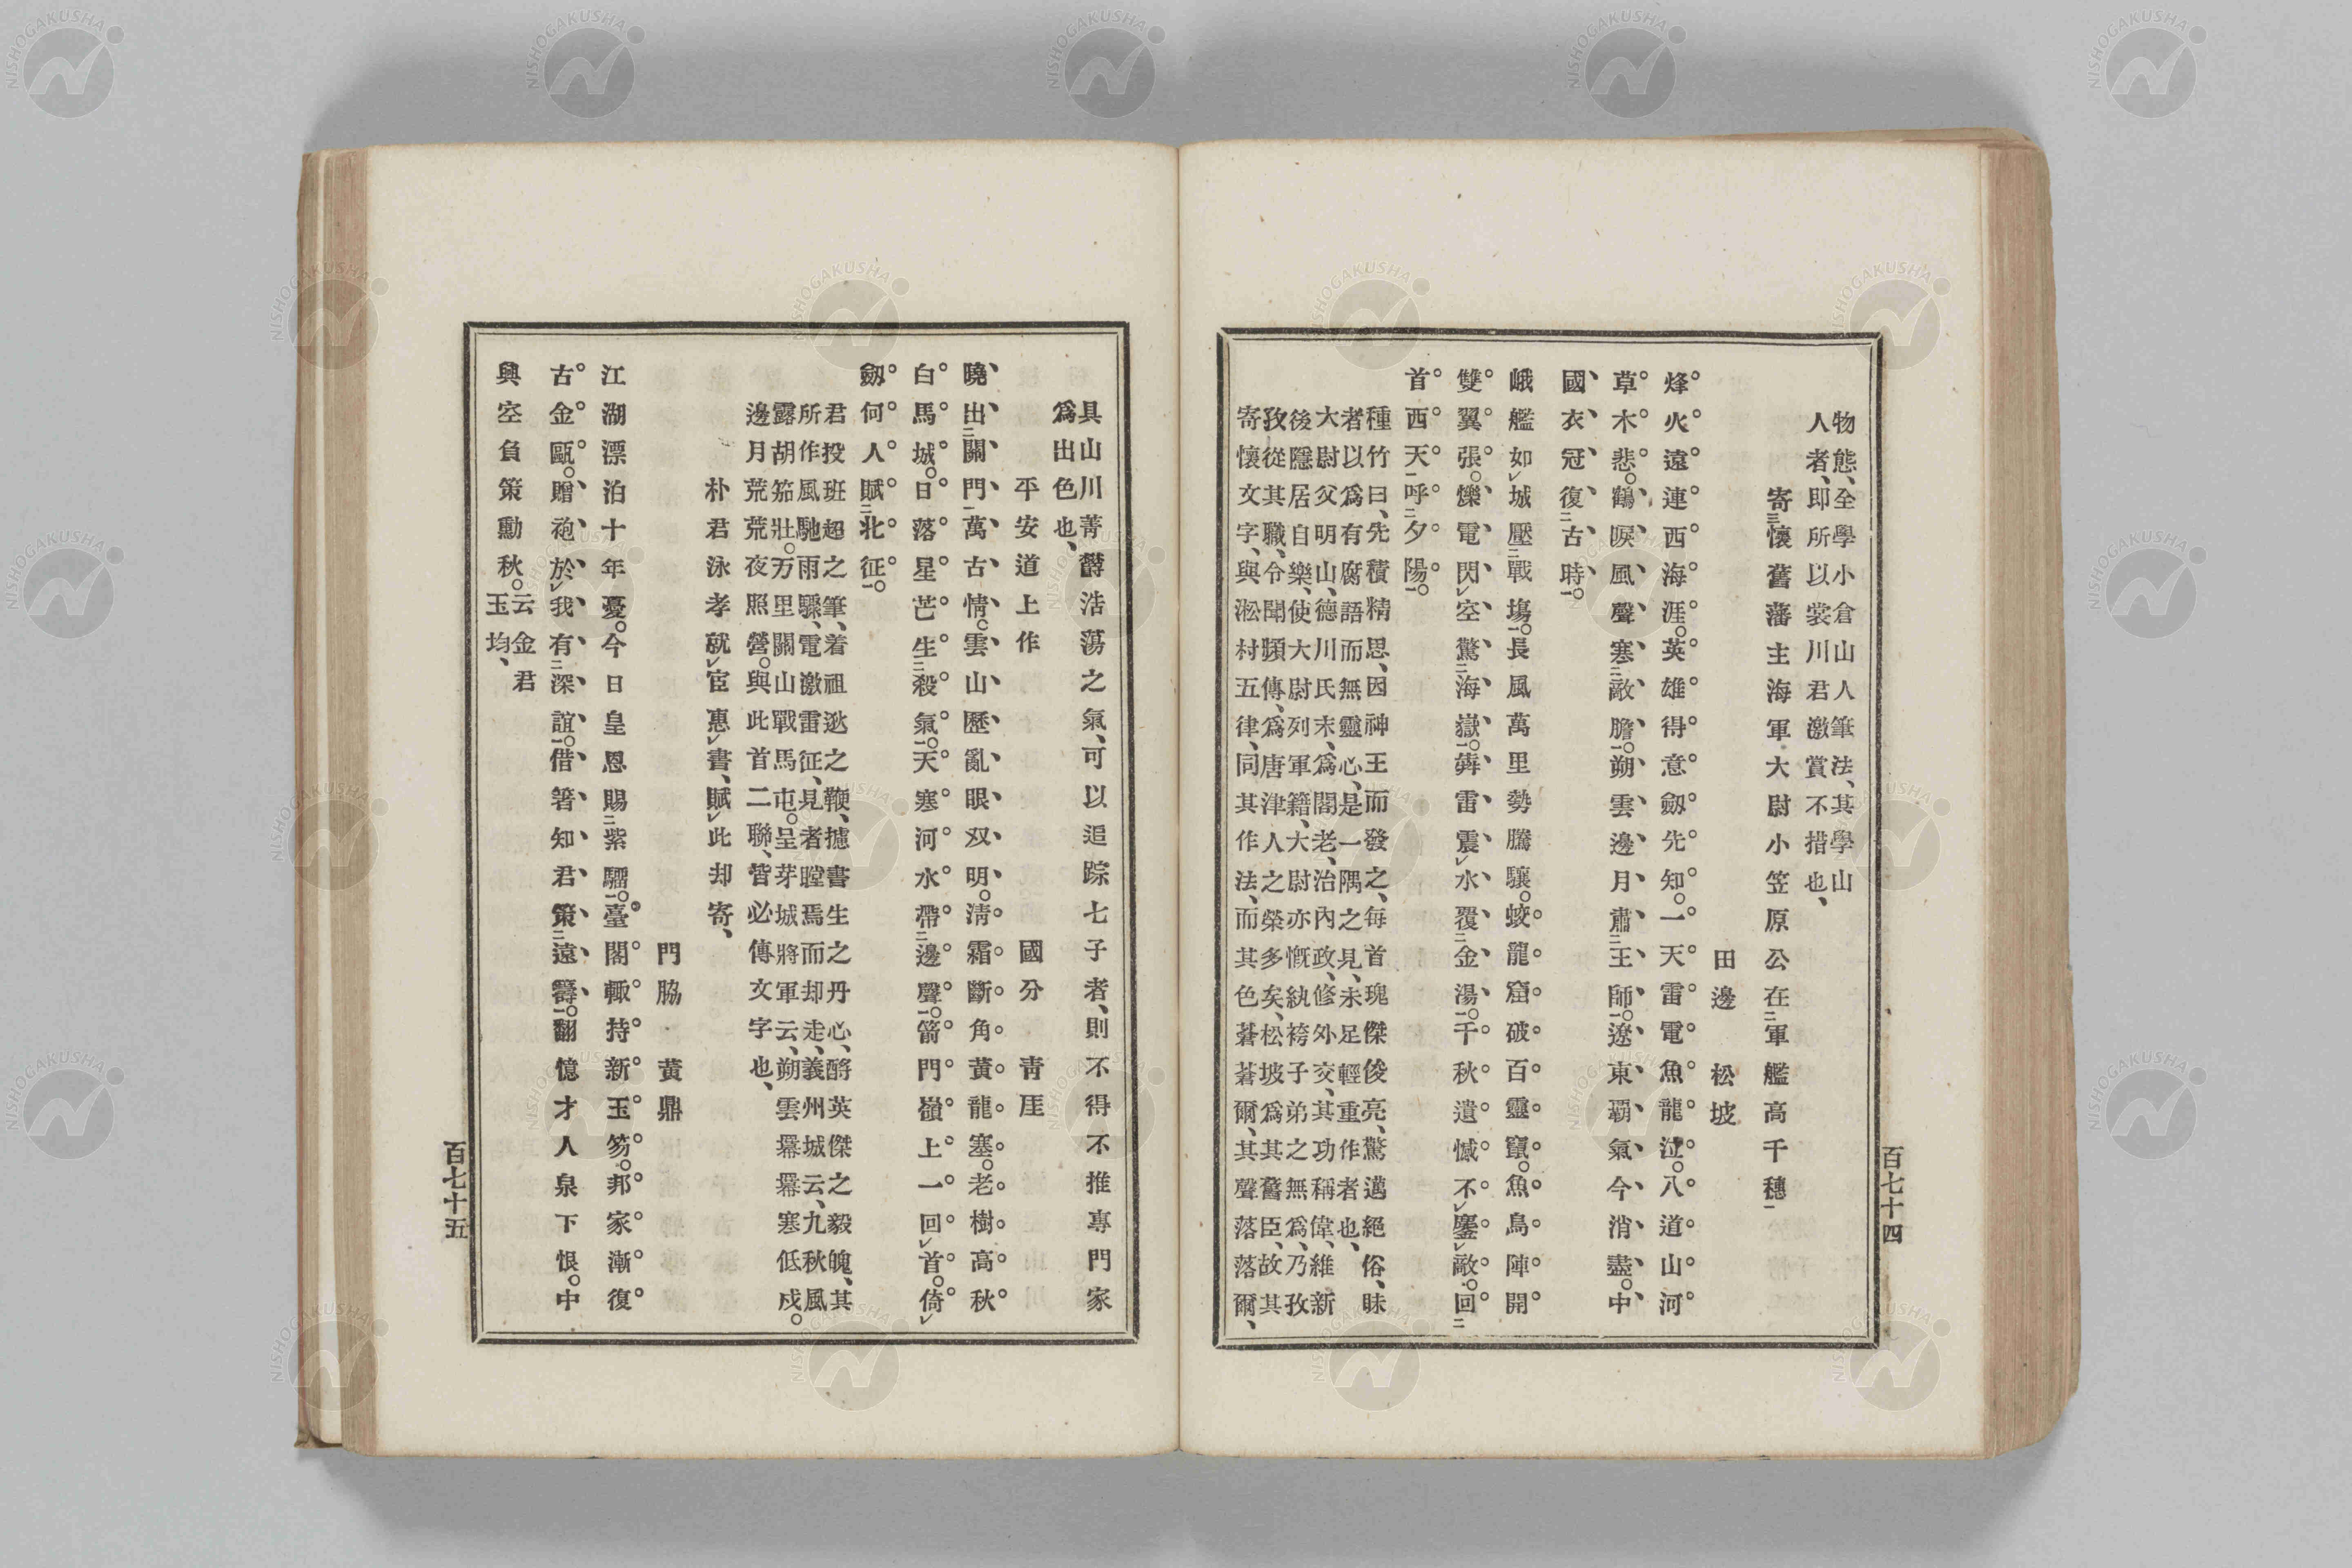 物態、全學小倉山人筆法、其學山
人者、即所以裳川君激賞不措也、
寄懷舊藩主海軍大尉小笠原公在軍艦高千穗
田邊松坡
烽火遠連西海涯。英雄得意劒先知。一天雷電魚龍泣。八道山河
草木悲。鶴唳風聲寒敵膽。朔雲邊月肅王師。遼東覇氣今消盡。中
國衣冠復古時。
峨艦如城壓戰塲。長風萬里勢騰驤。蛟龍窟破百靈竄。魚鳥陣開
雙翼張。爍電閃空驚海嶽。犇雷震水覆金湯。千秋遺憾不鏖敵。回
首西天呼夕陽。
種竹曰、先積精思、因神王而發之、每首瑰傑俊亮、驚邁絕俗、昧
者以爲有腐語而無靈心、是一隅之見、未足輕重作者也、
大尉父明山、德川氏末、爲閣老、治內政、修外交、其功稱偉、維新
後隱居自樂、使大尉列軍籍、大尉亦慨紈袴子弟之無爲、乃孜
孜從其職、今聞頻傳、爲唐津人之榮多矣、松坡爲其舊臣、故其
寄懷文字、與淞村五律、同其作法、而其色蒼蒼爾、其聲落落爾、
百七十四
具山川菁鬱浩蕩之氣、可以追踪七子者、則不得不推專門家
爲出色也、
平安道上作
國分青厓
曉出關門萬古情。雲山歷亂眼双明。淸霜斷角黃龍塞。老樹高秋
白馬城。日落星芒生殺氣。天寒河水帶邊聲。箭門嶺上一回首。倚
劒何人賦北征。
君投班超之筆、着祖逖之鞭、攄書生之丹心、酹英傑之毅魄、其
所作風馳雨驟、電激雷征、見者瞠焉而却走、義州城云、九秋風
露胡笳壯。万里關山戰馬屯。呈芽城將軍云、朔雲羃羃寒低戍。
邊月荒荒夜照營。與此首二聯、皆必傳文字也、
朴君泳孝就宦惠書、賦此却寄、
門脇黃鼎
江湖漂泊十年憂。今日皇恩賜紫騮。臺閣輙持新玉笏。邦家漸復
古金甌。贈袍於我有深誼。借箸知君策遠籌。翻憶才人泉下恨。中
興空負策勳秋。云金君
玉均、
百七十五